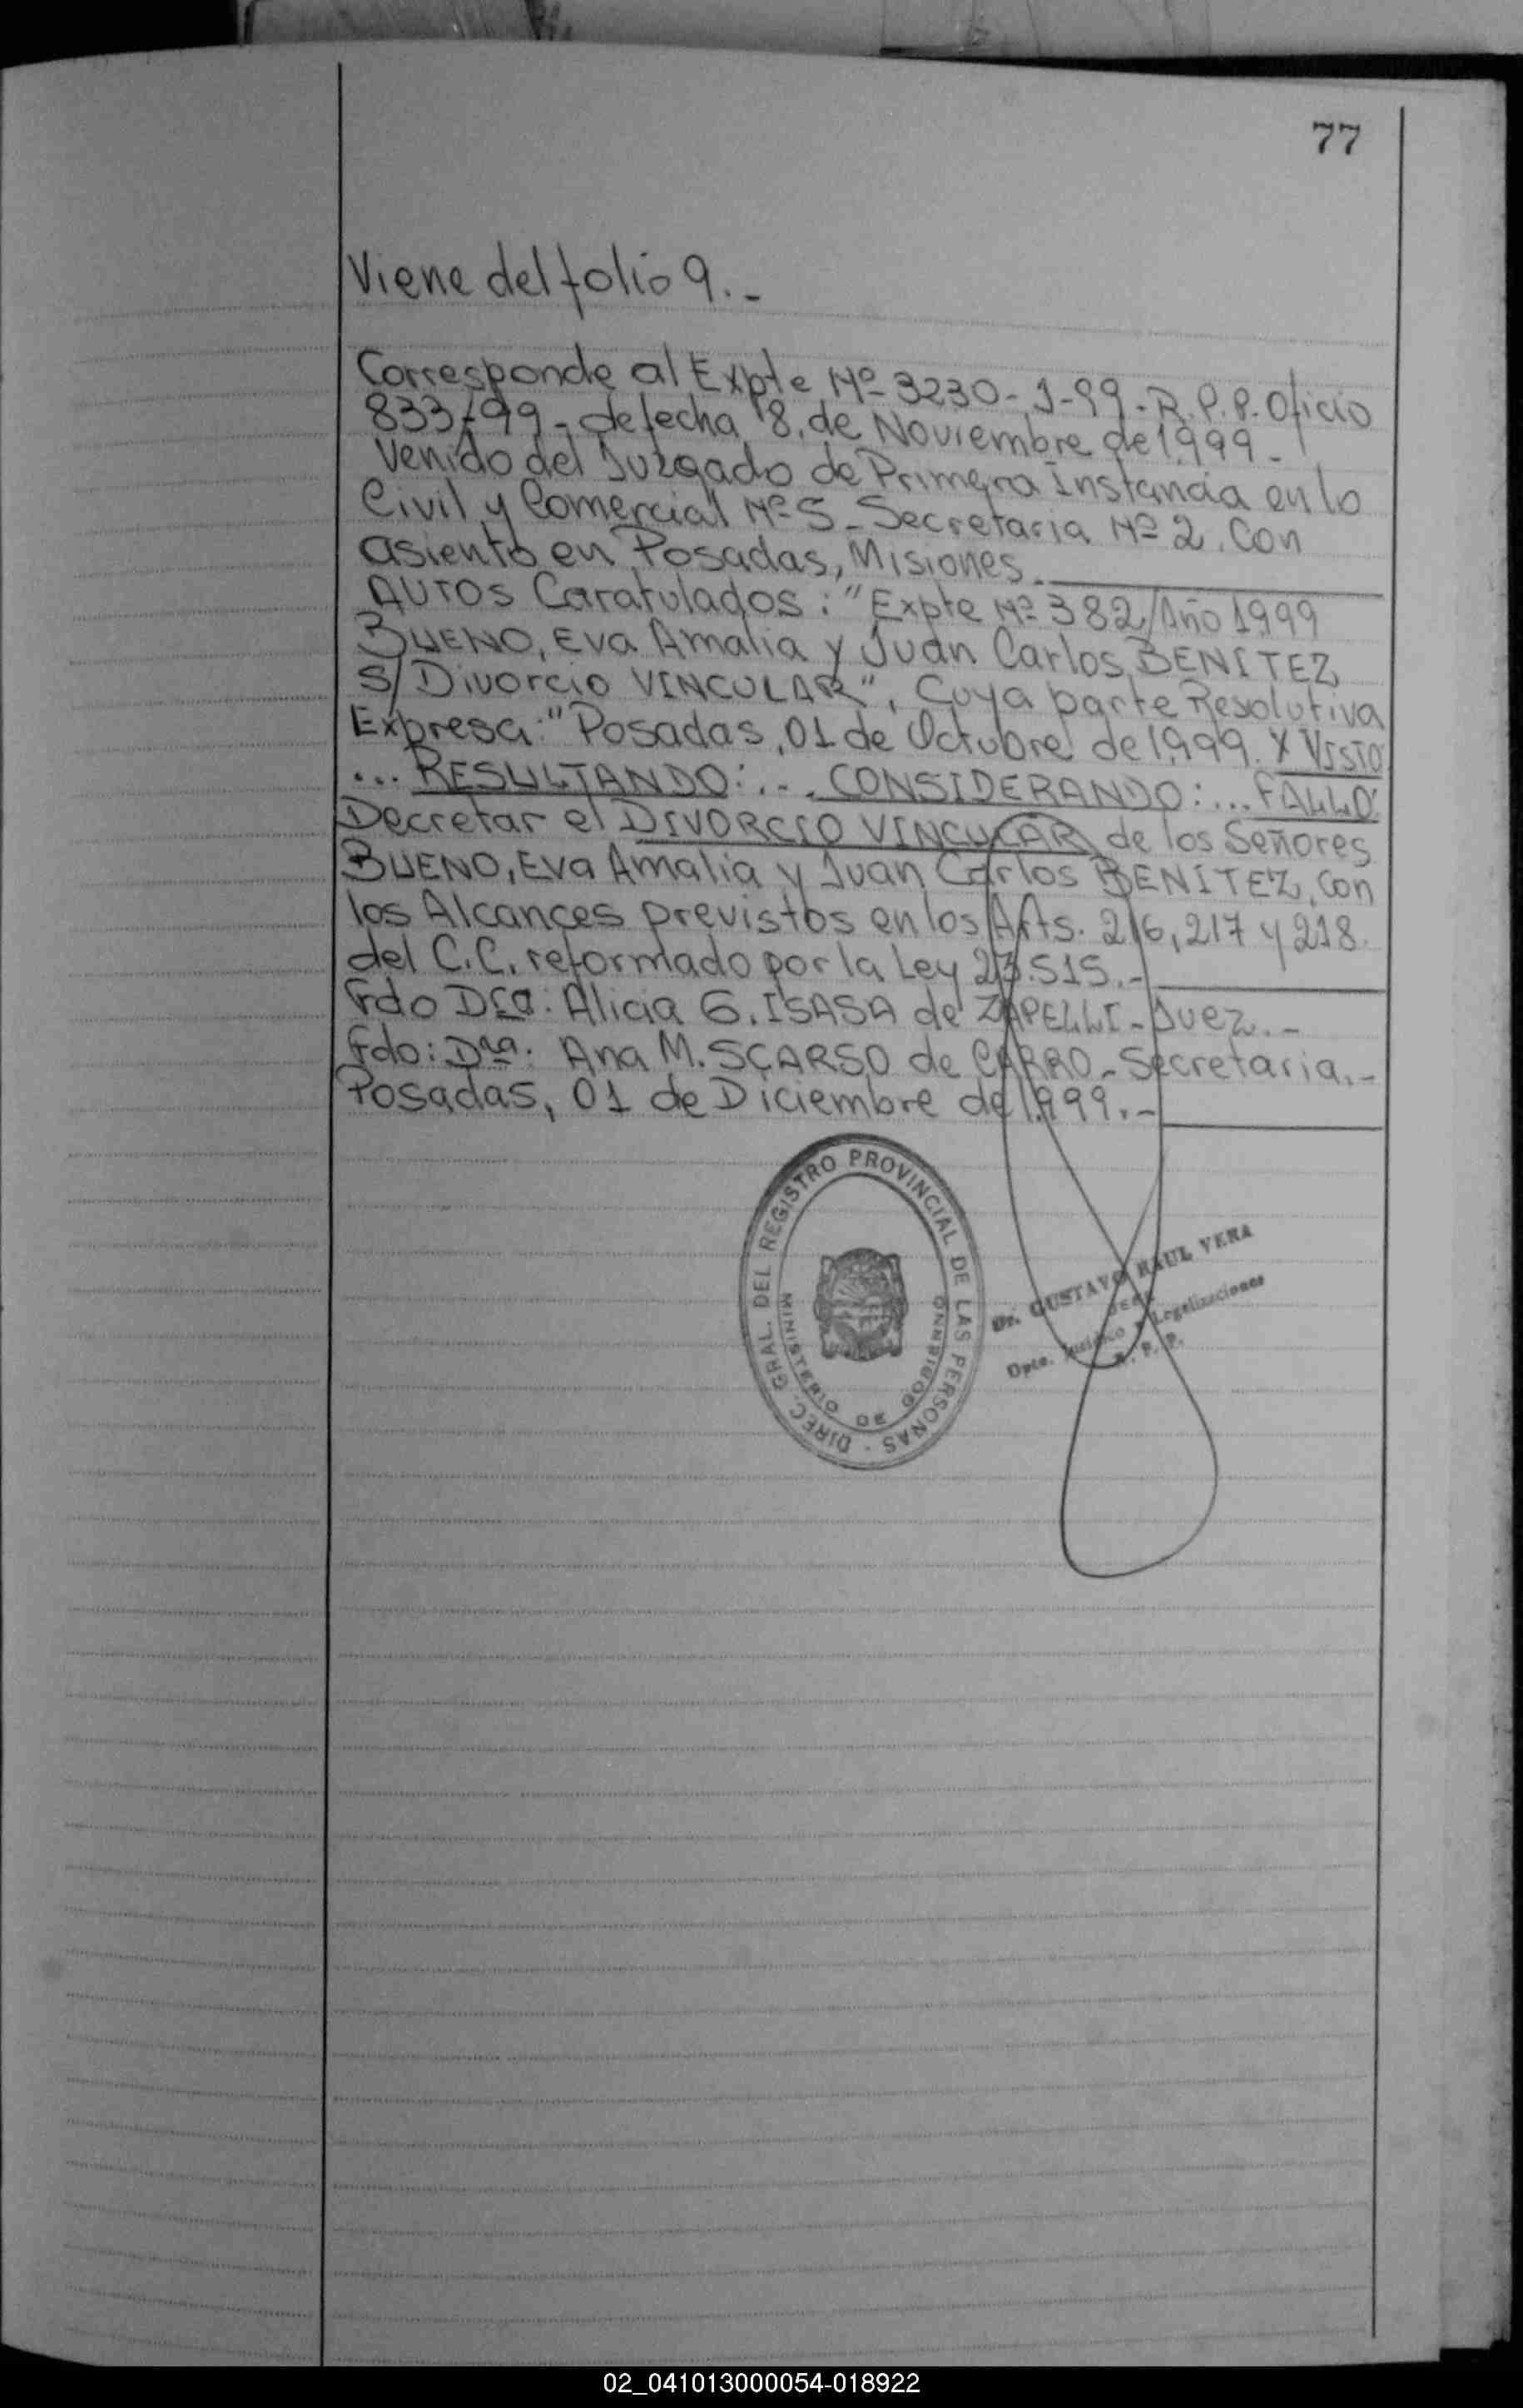 77
Viene del folio 9.-
Corresponde al Expte Nº 3230-J-99-R.P.P. Oficio
833/99-, de fecha 8, de Noviembre de 1999-
Venido del Juzgado de Primera Instancia en lo
Civil y Comercial Nº 5- Secretaria Nº 2. Con
asiento en Posadas, Misiones.
AUTOS Caratulados: "Expte Nº 382/Año 1999
BUENO, Eva Amalia y Juan Carlos BENITEZ
S/ Divorcio VINCULAR", Cuya parte Resolutiva
Expresa: "Posadas, 01 de Octubre de 1,999. Y VISTO
... RESULTANDO: ... CONSIDERANDO: ... FALLO:
Decretar el DIVORCIO VINCULAR de los Señores
BUENO, Eva Amalia y Juan Carlos BENITEZ, con
los Alcances previstos en los Arts. 216, 217 y 218.
del C.C. reformado por la Ley 23.515.-
Fdo Dra: Alicia G. ISASA de ZAPELLI- Juez.-
Fdo: Dra: Ana M. SCARSO de CARRO- Secretaria.-
Posadas, 01 de Diciembre de 1,999.-
DIREC. GRAL. DEL REGISTRO PROVINCIAL DE LAS PERSONAS
MINISTERIO DE GOBIERNO
Dr. GUSTAVO RAUL VERA
JEFE
Dpto. Jurídico y Legalizaciones
R. P. P.
02_041013000054-018922